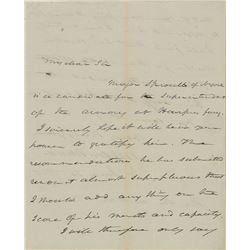 My dear Sir
Major Sprowls of
is a candidate for the Superintendence
of the armory at Harpers ferry.
I sincerely hope it will be in your
power to gratify him. The
recommendations he has submitted
render it almost superfluous that
I should add any thing on the
score of his merits and capacity.
I will therefore only say